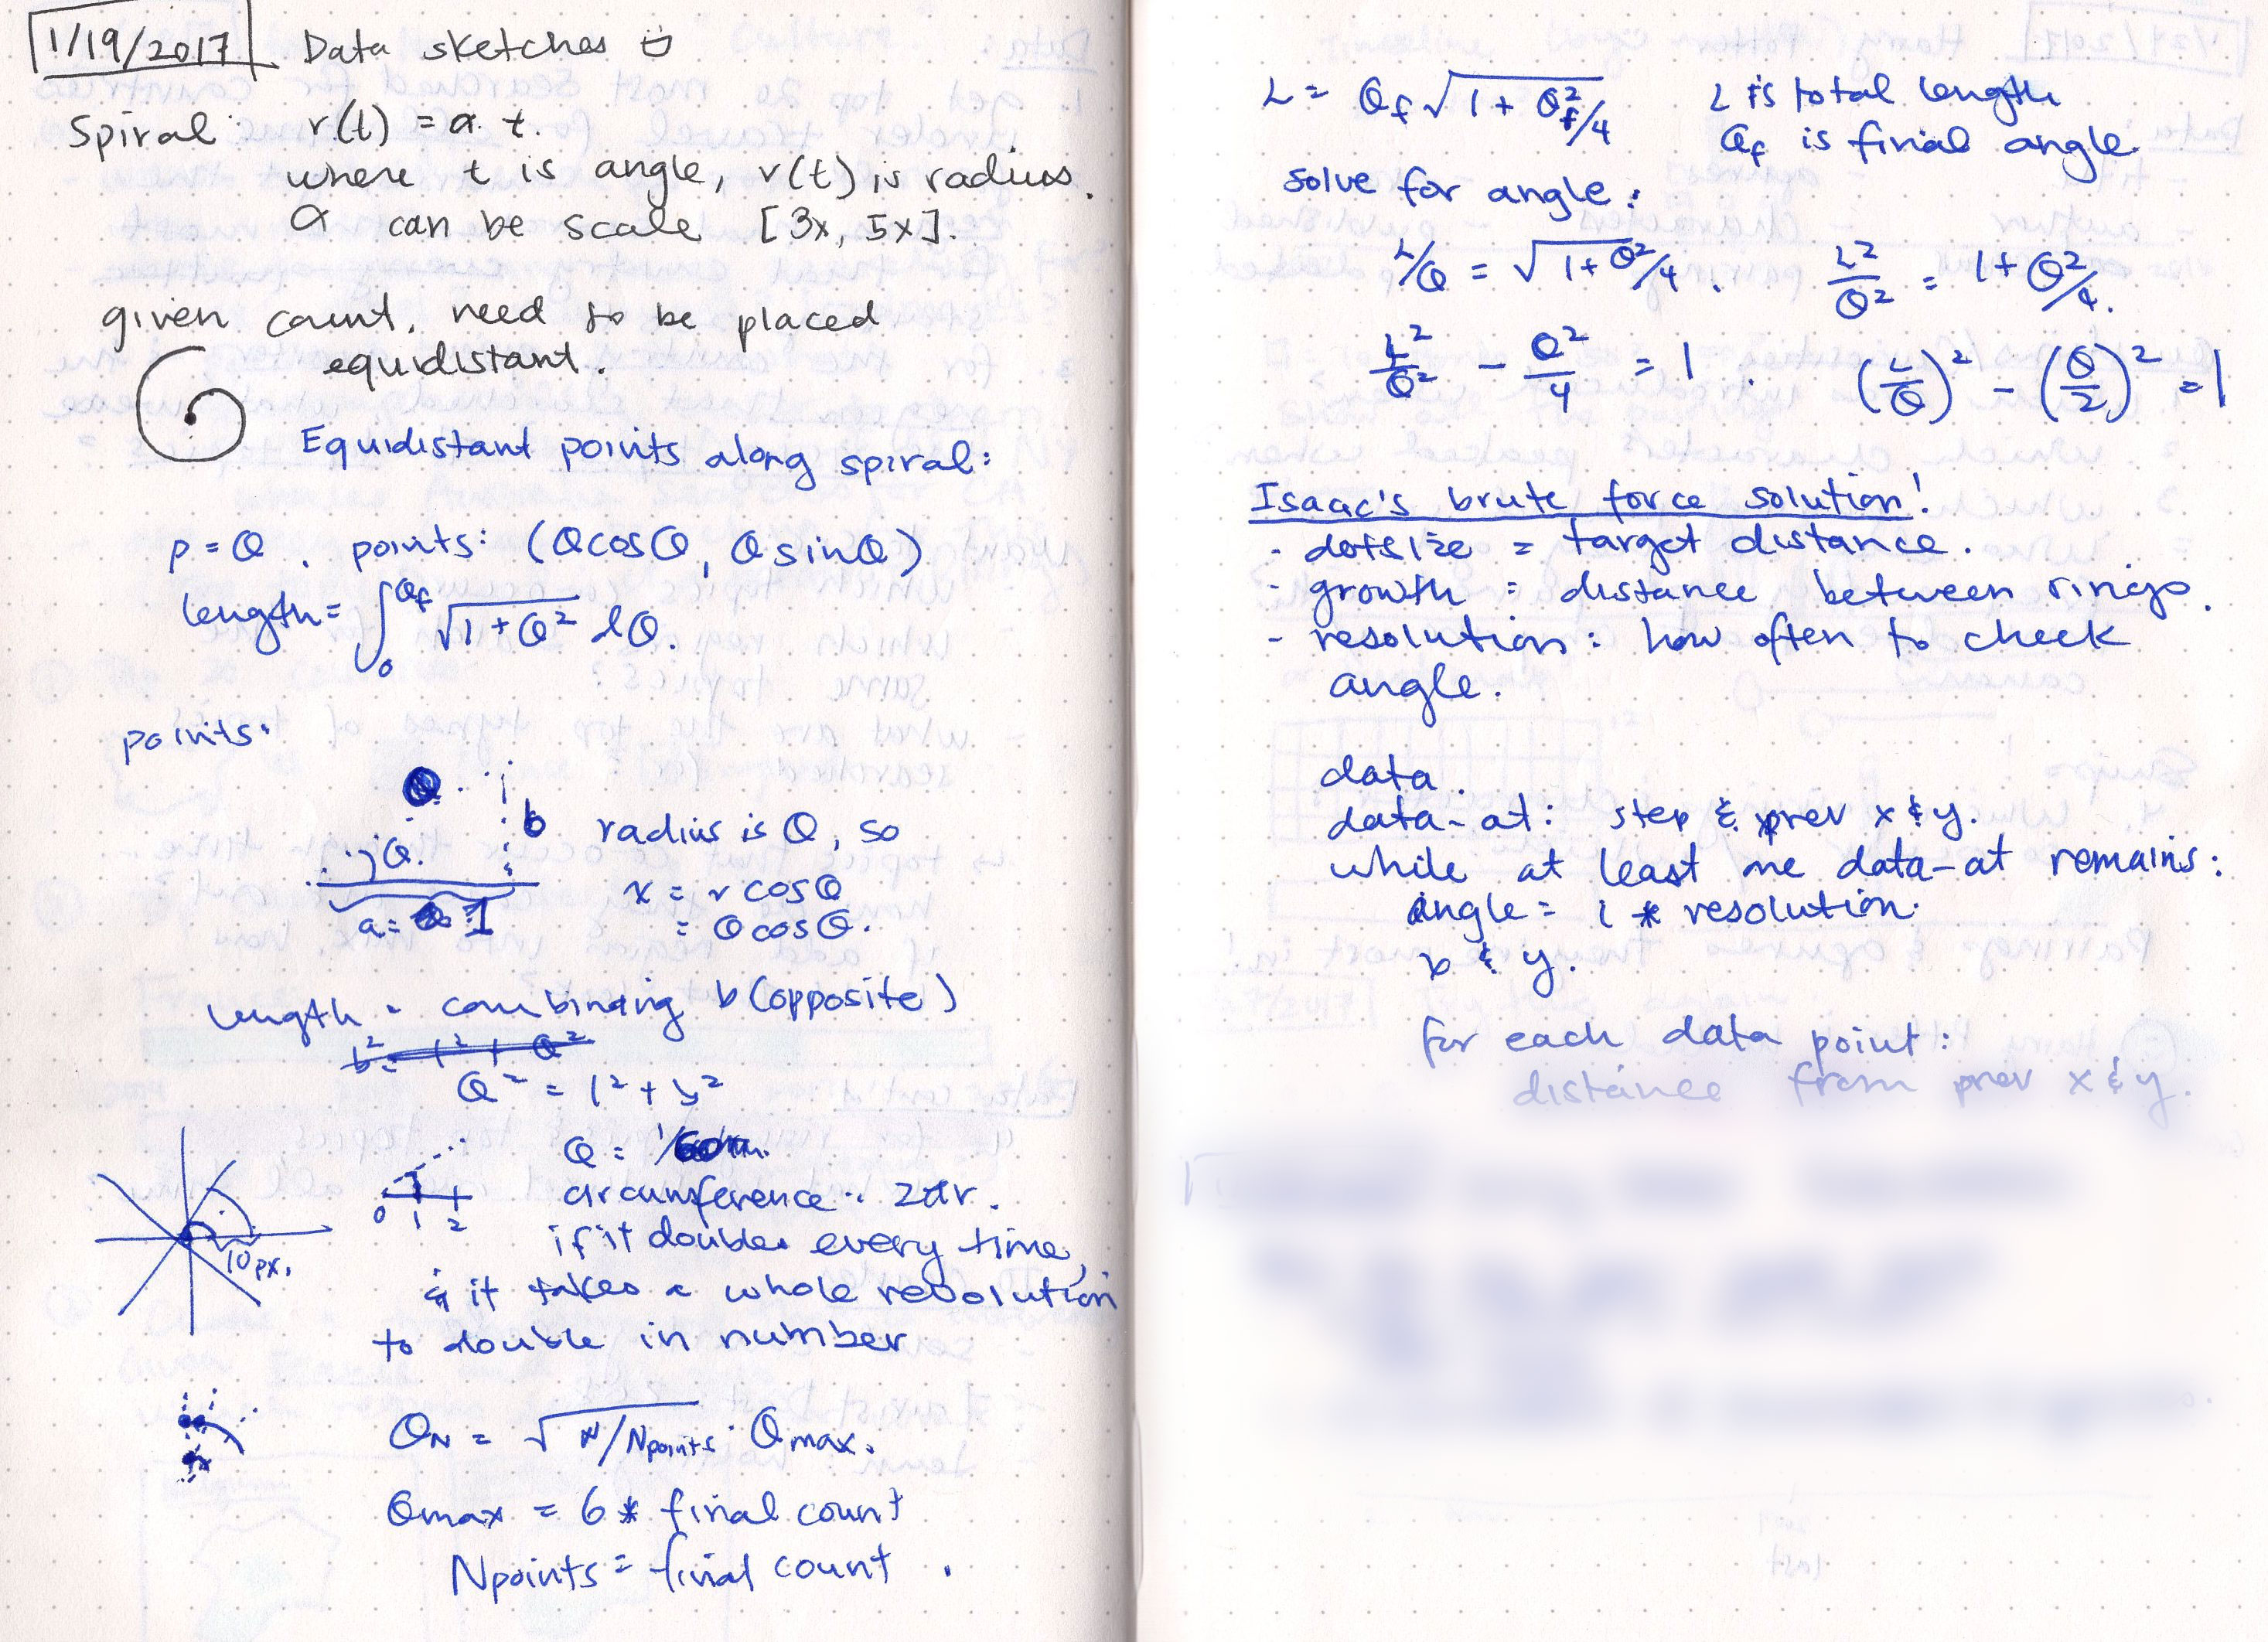 1/19/2017 Data sketches
Spiral: r(t) = a. t.
where t is angle, r(t) is radius.
a can be scale [3x, 5x].
given count, need to be placed
equidistant.
Equidistant points along spiral:
p = θ, points: (θcosθ, θsinθ)
length = ∫₀^θf √(1+θ²) dθ.
points:
θ
b
radius is θ, so
θ.
x = r cosθ
a = 1
= θcosθ.
length = combining b (opposite)
b² = 1² + θ²
θ² = 1² + b²
θ = 1/
circumference = 2πr.
0 1 2
if it doubles every time,
10px.
& it takes a whole revolution
to double in number
θN = √(N/Npoints) · θmax.
θmax = 6 * final count
Npoints = final count.
L = θf √(1 + θf²/4)
L is total length
θf is final angle
solve for angle:
L/θ = √(1+θ²/4). L²/θ² = 1 + θ²/4.
L²/θ² - θ²/4 = 1. (L/θ)² - (θ/2)² = 1
Isaac's brute force solution!
- dotsize = target distance.
- growth = distance between rings.
- resolution: how often to check
angle.
data.
data-at: step & prev x & y.
while at least one data-at remains:
angle = i * resolution.
& y.
for each data point:
distance from prev x & y.